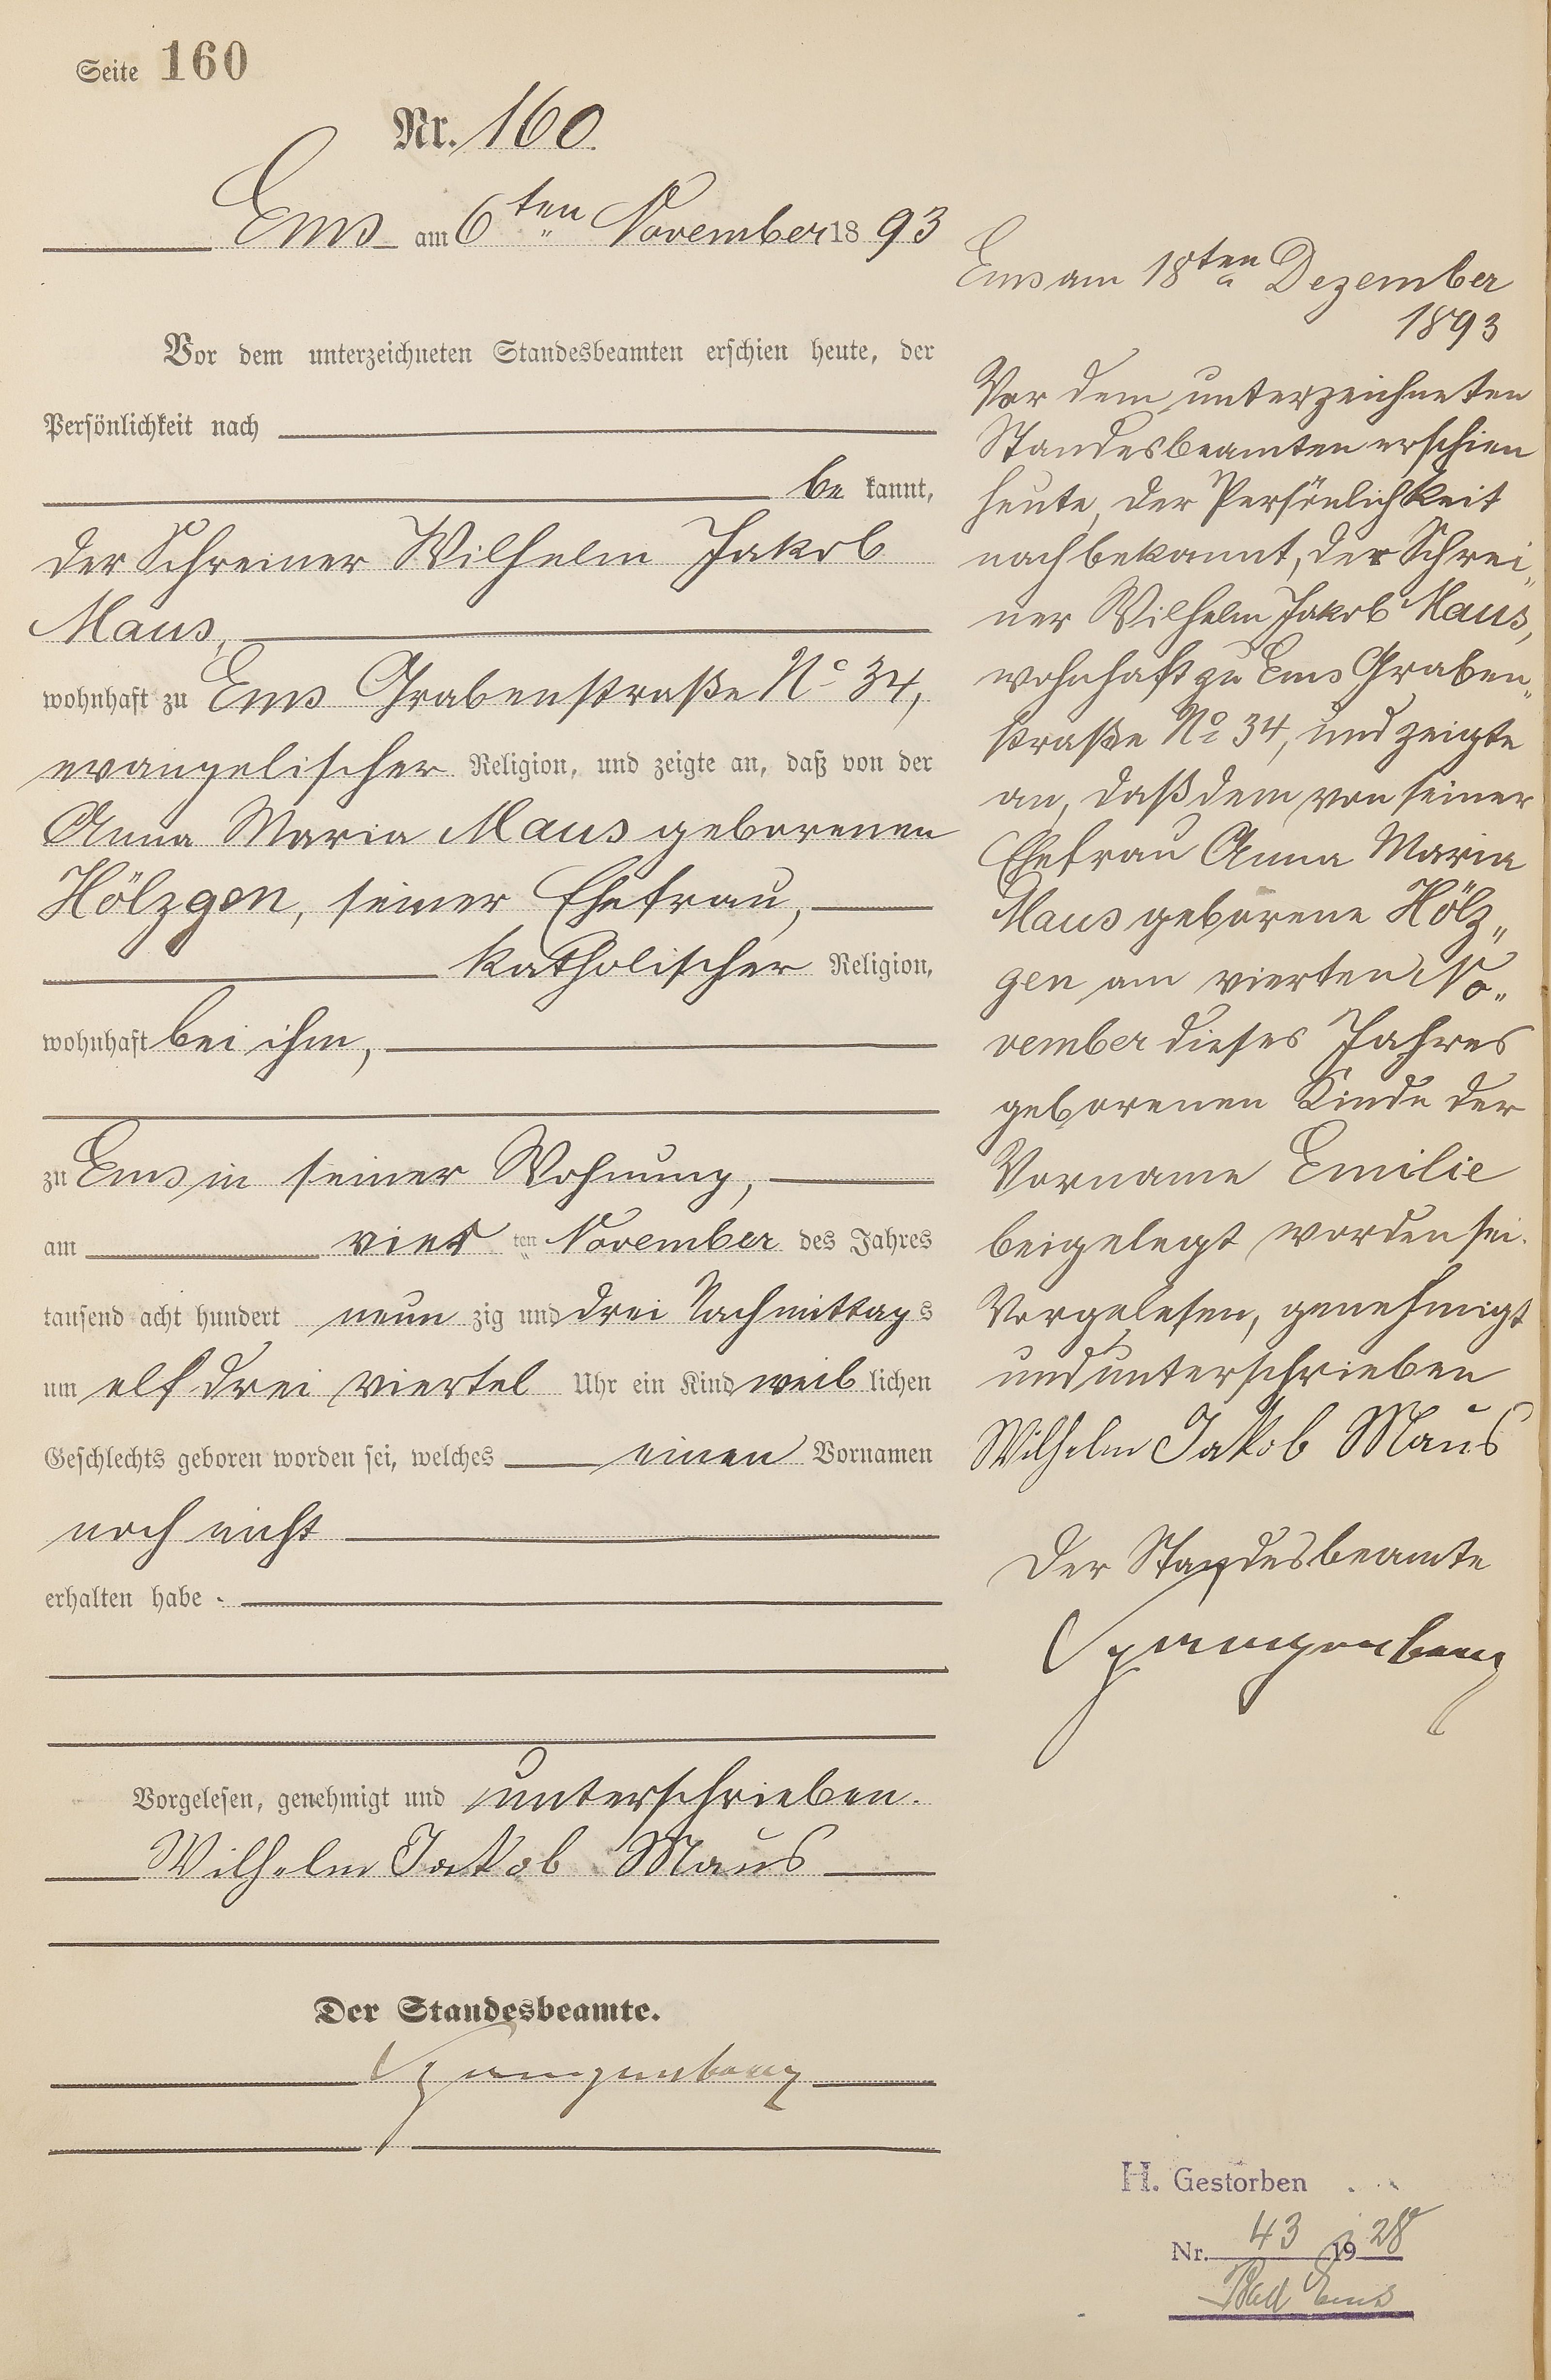 Seite 160
Nr. 160.
Ems am 6ten November 1893
Vor dem unterzeichneten Standesbeamten erschien heute, der
Persönlichkeit nach
be kannt,
der Schreiner Wilhelm Jakob
Maus,
wohnhaft zu Ems Grabenstraße No 34,
evangelischer Religion, und zeigte an, daß von der
Anna Maria Maus geborenen
Hölzgen, seiner Ehefrau,
katholischer Religion,
wohnhaft bei ihm,
zu Ems in seiner Wohnung,
am vier ten November des Jahres
tausend acht hundert neun zig und drei Nachmittags
um elf drei viertel Uhr ein Kind weib lichen
Geschlechts geboren worden sei, welches einen Vornamen
noch nicht
erhalten habe.
Vorgelesen, genehmigt und unterschrieben.
Wilhelm Jakob Maus
Der Standesbeamte.
Spangenberg
Ems am 18ten Dezember
1893
Vor dem unterzeichneten
Standesbeamten erschien
heute, der Persönlichkeit
nach bekannt, der Schrei„
ner Wilhelm Jakob Maus,
wohnhaft zu Ems Graben„
straße No 34, und zeigte
an, daß dem von seiner
Ehefrau Anna Maria
Maus geborene Hölz„
gen am vierten No„
vember dieses Jahres
geborenen Kinde der
Vorname Emilie
beigelegt worden sei.
Vorgelesen, genehmigt
und unterschrieben
Wilhelm Jakob Maus
Der Standesbeamte
Spangenberg
H. Gestorben
Nr. 43 1928
Bad Ems